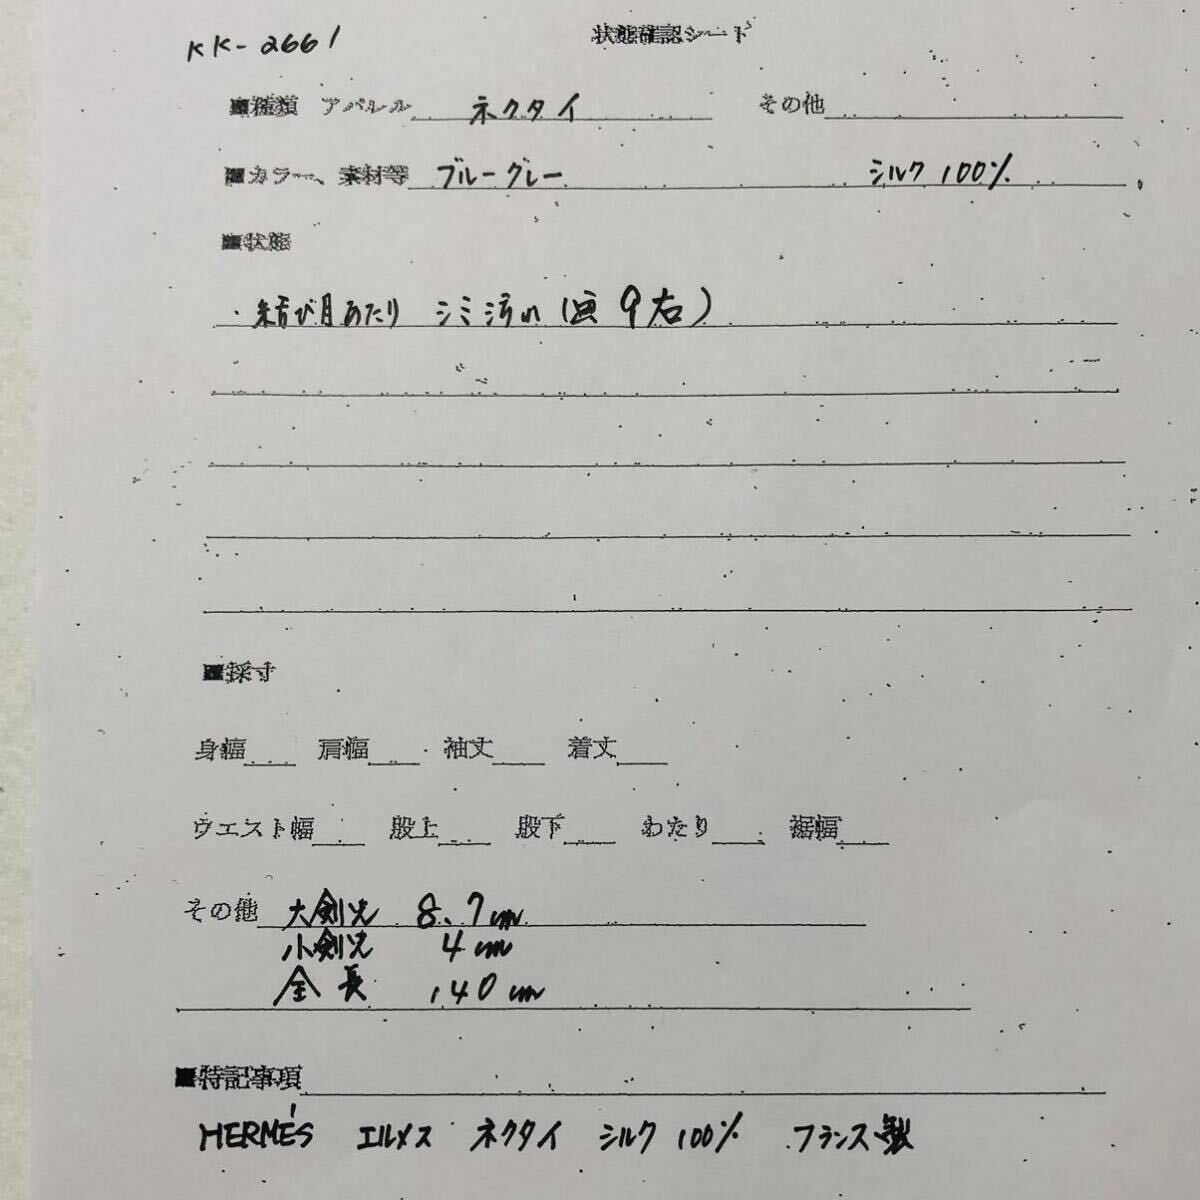 KK-2661
状態確認シート
■種類 アパレル ネクタイ その他
■カラー、素材等 ブルーグレー シルク 100%
■状態
・結び目あたり シミ汚れ (画9右)
■採寸
身幅 肩幅 袖丈 着丈
ウエスト幅 股上 股下 わたり 裾幅
その他 大剣先 8.7cm
小剣先 4cm
全長 140cm
■特記事項
HERMÉS エルメス ネクタイ シルク 100% フランス製